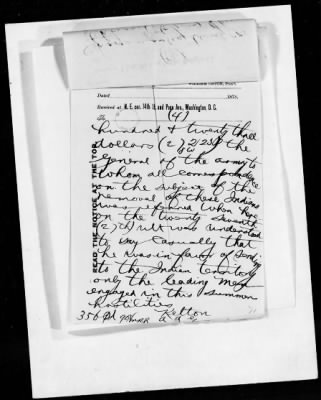 Dated 1878.
Received at N. E. cor. 14th St. and Penn Ave., Washington, D. C.
To (4)
READ THE NOTICE AT THE TOP.
hundred & twenty three
dollars (2) the
general of the army to
whom all correspondence
on the subject of the
removal of these Indians
was referred when here
on the twenty seventh
(27) ult was understood
to say casually that
he was in favor of sending
to the Indian territory
only the leading men
engaged in this summer
hostilities
356 Pd Kelton